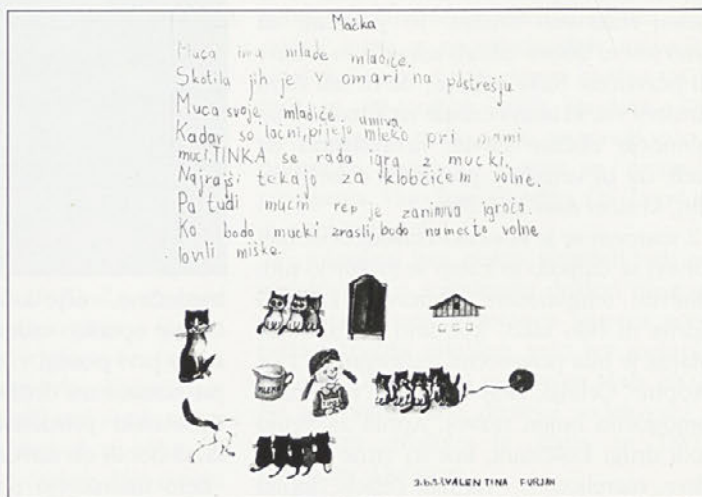 Mačka
Muca ima mlade mladiče.
Skotila jih je v omari na postrešju
Muca svoje mladiče umiva.
Kadar so lačni, pijejo mleko pri mami
muci. TINKA se rada igra z mucki.
Najrajši tekajo za klobčičem volne.
Pa tudi mucin rep je zanimiva igrača.
Ko bodo mucki zrasli, bodo namesto volne
lovili miške.
VALENTINA FURJAN